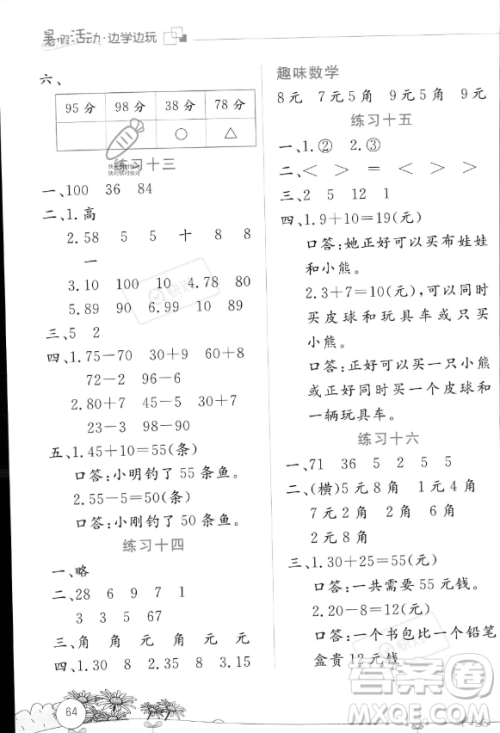 暑假活动·边学边玩
六、
95分 98分 38分 78分
○ △
练习十三
一、100 36 84
二、1.高
2.58 5 5 十 8 8
一
3.10 100 4.78 80
5.89 90 6.99 97
三、5 2
四、1.75－70 30＋9 60＋8
72－2 96－6
2.80＋7 32－2 9＋80
23－3 98－90
五、1.45＋10＝55(条)
口答：小明钓了55条鱼。
2.55－5＝50(条)
口答：小刚钓了50条鱼。
练习十四
一、略
二、28 6 9 7 1
3 3 5 67
三、角 角 角 元 元 元
四、1.30 8 2.54 3.15
64
趣味数学
8元 7元5角 9元5角 9元
练习十五
一、1.② 2.③
二、＜ ＞ ＝ ＞ ＞ ＞
三、2 5 12 1
四、1.9＋10＝19(元)
口答：她正好可以买布娃娃
和小熊。
2.3＋7＝10(元)，可以同时
买皮球和玩具车，也可以只买
小熊。
口答：正好可以买一只小熊
或正好可以同时买一个皮球和
一辆玩具车。
练习十六
一、71 36 5 2 5 5
二、(横)5元8角 1元2角
2元 8元4角
三、1.30＋25＝55(元)
口答：一共需要55元钱。
2.20－8＝12(元)
口答：一个书包比一个铅笔
盒贵12元钱。
答案圈